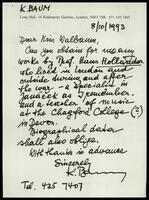 K BAUM
Long Hall, 16 Kidderpore Gardens, London, NW3 7SR 071-435 7407
8/10/1993
Dear Kris Walbaum,
Can you obtain for me any
works by Prof. Hans Hollander
who lived in London and
outside during and after
the war - a specialist on
Janacek as I remember.
and a teacher of music
at the Chagford College (?)
in Devon.
Biographical data
shall also oblige.
With thanks in advance
Sincerely
K. Baum
Tel. 435 7407